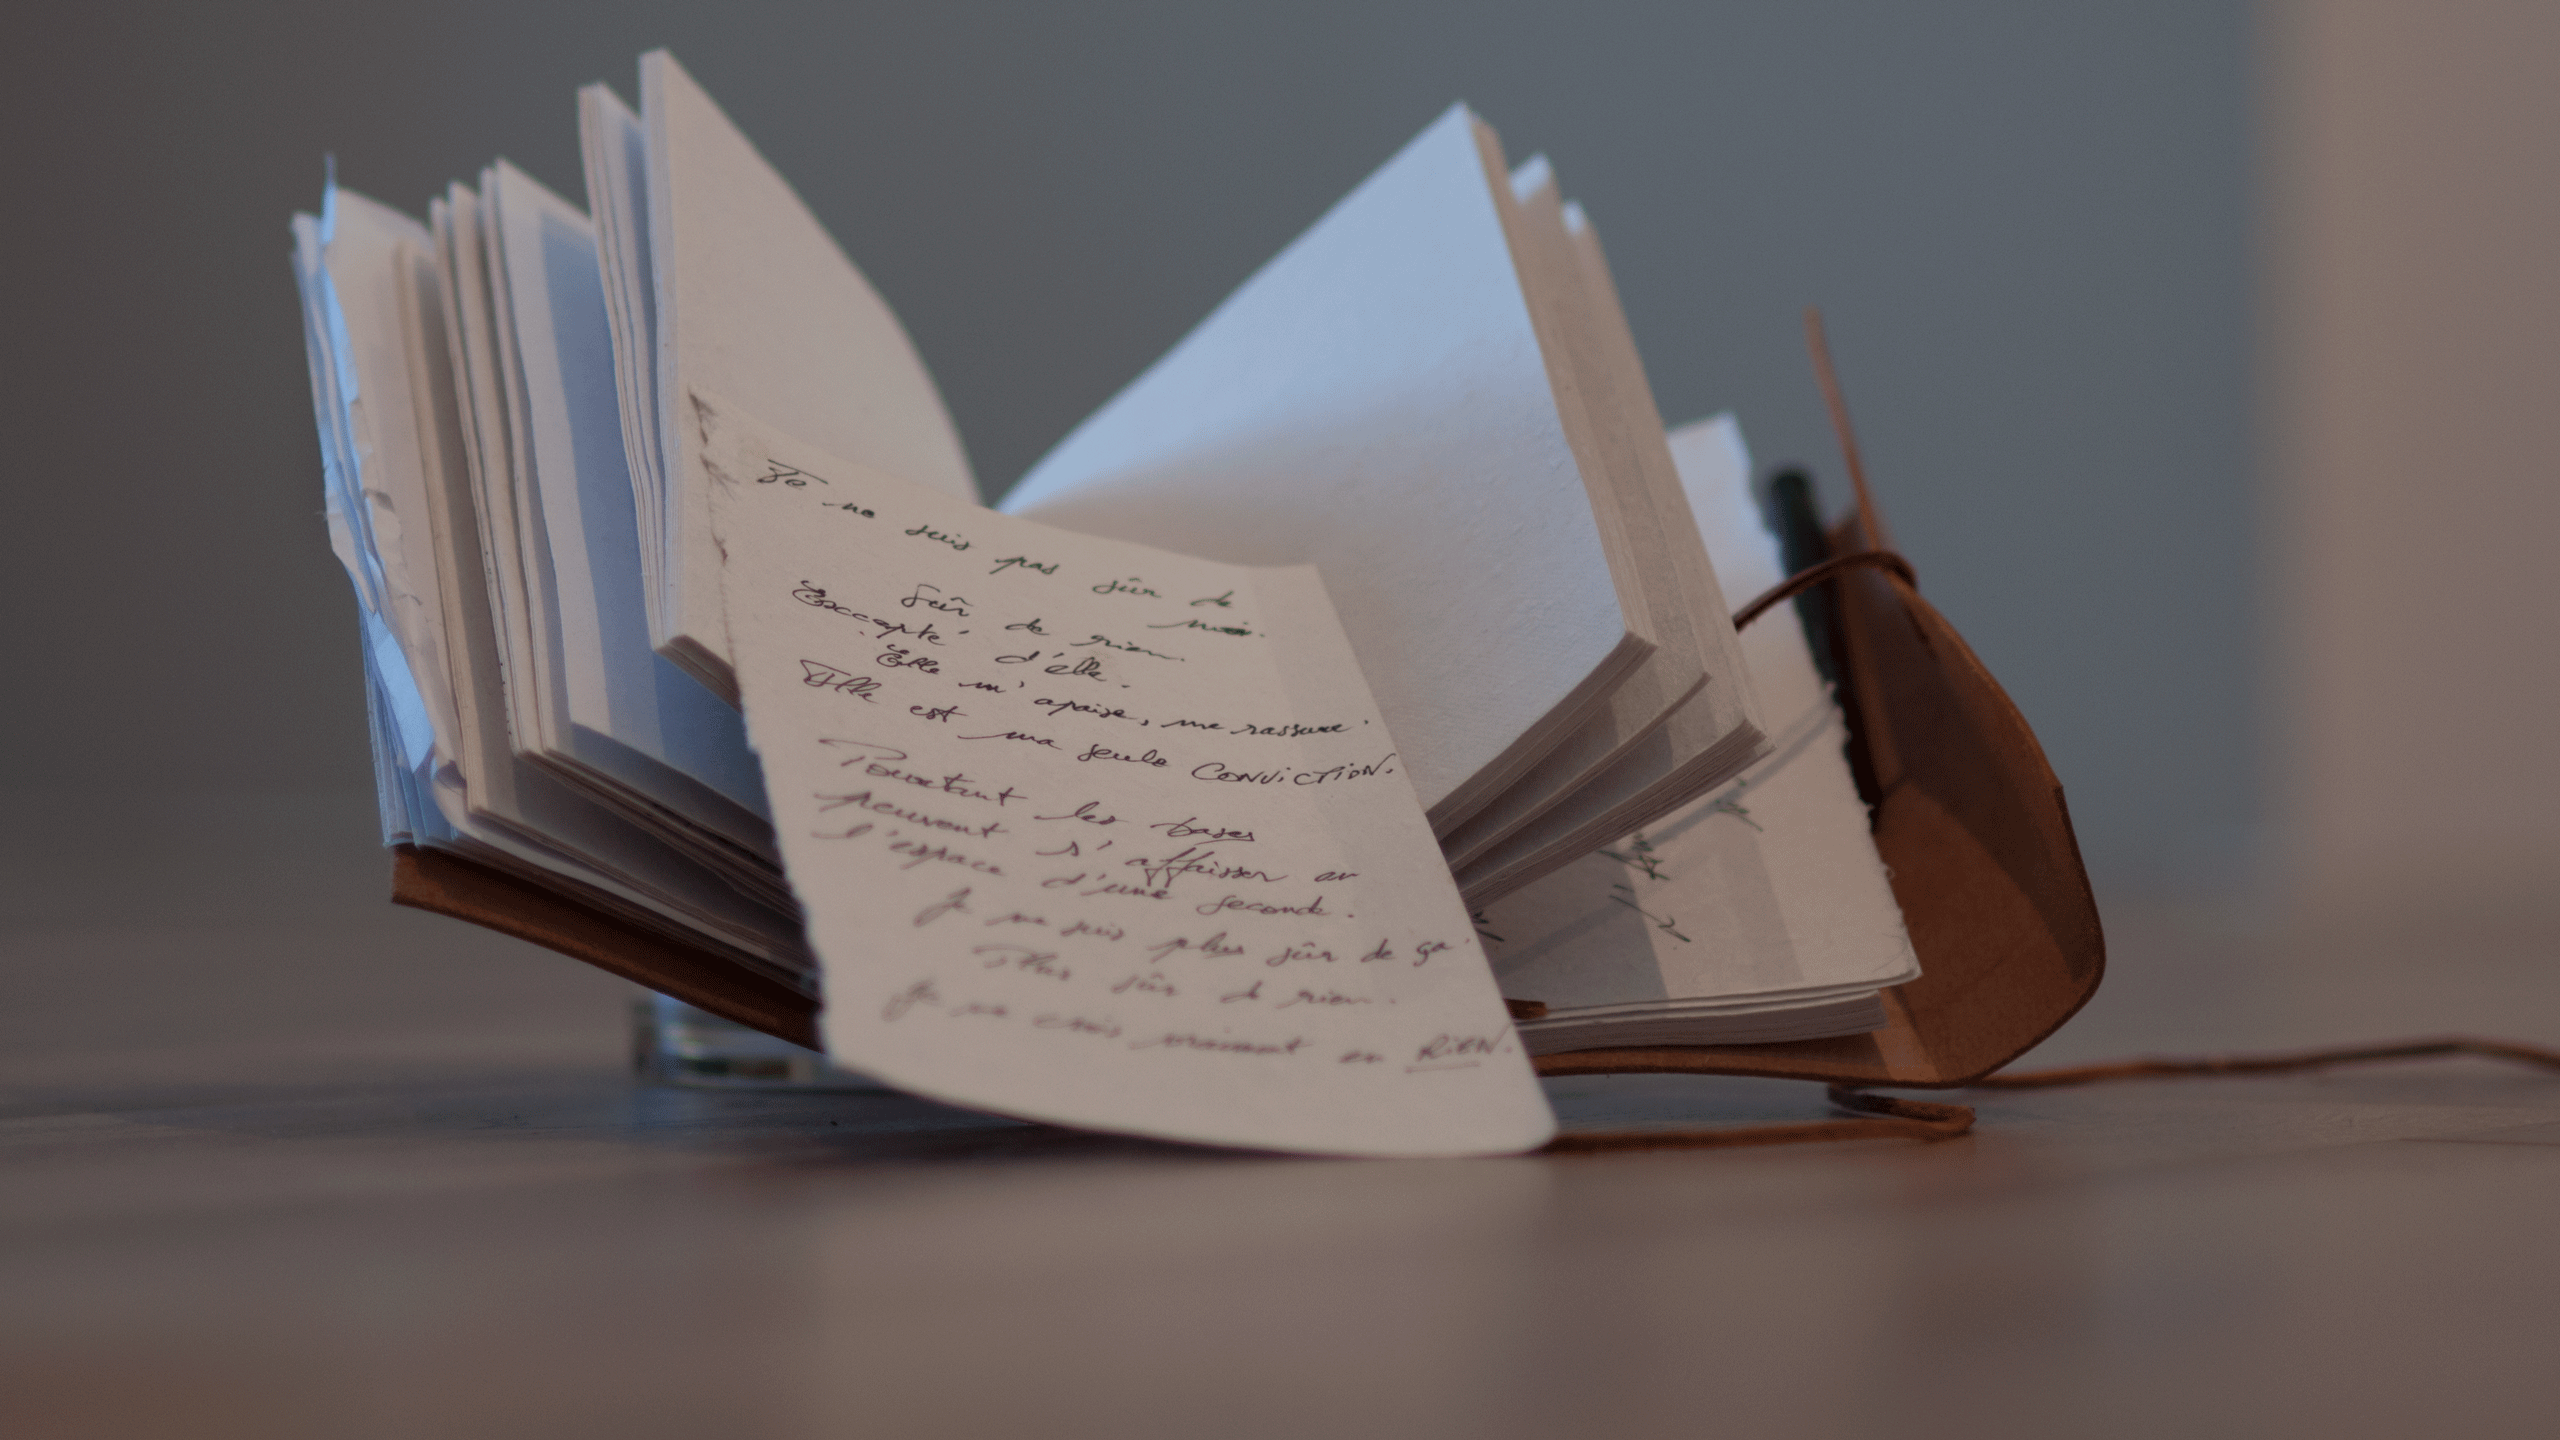 Je ne suis pas sûr de
moi.
Sûr de rien.
Excepté d'elle.
Elle m'apaise, me rassure.
Elle est ma seule CONVICTION.
Pourtant les bases
peuvent s'affaisser en
l'espace d'une seconde.
Je ne suis plus sûr de ça.
Plus sûr de rien.
Je ne crois vraiment en RIEN.